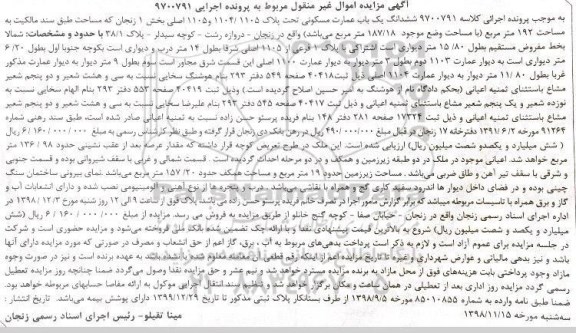 آگهی مزایده اموال غیر منقول مربوط به پرونده اجرایی ۹۷۰۰۷۹۱
به موجب پرونده اجرائی کلاسه ۹۷۰۰۷۹۱ ششدانگ یک باب عمارت مسکونی تحت پلاک ۱۱۰۴ / ۱۱۰۵ و ۱۱۰۵ اصلی بخش ۱ زنجان که مساحت طبق سند مالکیت به
مساحت ۱۹۲ متر مربع (با مساحت وضع موجود ۱۸۷/۱۸ متر مربع میباشد) واقع در زنجان - دروازه رشت - کوچه سیدلر - پلاک ۳۸/۱ با حدود و مشخصات: شمالا
بخط مفروض مستقیم بطول ۱۵/۸۰ متر دیواری است اشتراکی با پلاک ۱ فرعی از ۱۱۰۵ اصلی شرقا بطول ۱۴ متر درب و دیواری است بکوچه جنوبا اول بطول ۶/۲۰
متر دیواری است به دیوار عمارت ۱۱۰۳ دوم بطول متر دیوار به دیوار عمارت ۱۱۰۰ اصلی این قسمت شرق مجاور است سوم بطول ۹ متر دیوار به دیوار عمارت مذکور
غربا بطول ۱۱/۸۰ متر دیوار به دیوار عمارت ۱۱۰۴ اصلی ذیل ثبت ۴۰۴۱۸ صفحه ۵۴۹ دفتر ۲۹۳ بنام هوشنگ سخایی نسبت به سی و هشت شعیر و دو پنجم شعیر
مشاع باستثنای ثمنیه اعیانی (بحکم دادگاه نام پدر هوشنگ به امیر حسین اصلاح گردیده است) و ذیل ثبت ۲۰۴۱۹ صفحه ۵۵۳ دفتر ۲۹۳ بنام الهام سخایی نسبت به
نوزده شعیر و یک پنجم شعیر مشاع باستثنای ثمنیه اعیانی و ذیل ثبت ۴۰۴۱۷ صفحه ۵۴۵ دفتر ۲۹۳ بنام علیرضا سخایی نسبت به سی و هشت شعیر و دو پنجم شعیر
مشاع باستثنای ثمنیه اعیانی و ذیل ثبت ۱۷۳۲۴ صفحه ۲۸۱ دفتر ۱۴۸ بنام فریده پرستو حسن زاده نسبت به ثمنیه اعیانی صادر شده است، طبق سند رهنی شماره
۹۱۲۶۴ مورخه ۱۳۹۱/۶/۲ دفترخانه ۱۷ زنجان در قبال مبلغ ۴۹۰/۰۰۰/۰۰۰ ریال در رهن بانک دی زنجان قرار گرفته و طبق نظر کارشناس رسمی به مبلغ ۶/۱۶۰/۰۰۰/۰۰۰ ریال
( شش میلیارد و یکصدو شصت میلیون ریال) ارزیابی شده است. این ملک در طرح تعریض کوچه قرار داشته که مقدار عرصه بعد از عقب نشینی حدود ۱۳۶/۹۸ متر
مربع خواهد شد. اعیانی موجود در ملک در دو طبقه زیرزمین و همکف و در دو مرحله احداث گردیده است. قسمت شمالی و غربی با سقف شیروانی بوده و قسمت جنوبی
و شرقی با سقف تیر آهن و طاق ضربی می‌باشد. مساحت زیرزمین حدود ۱۹ متر مربع و مساحت همکف حدود ۱۵۷/۲۰ متر مربع می‌باشد نمای بیرونی ساختمان سنگ
چینی بوده و در فضای داخل دیوار ها اندرود سفید کاری گچ و همراه با نقاشی می‌باشد. درب و پنجره از نوع آهنی و آلومینیومی نصب شده و دارای انشعابات آب و
گاز و برق همراه با تاسیسات مربوطه میباشد
اداره اجرای اسناد رسمی زنجان واقع در زنجان - خیابان صفا - کوچه گنج خانلو از طریق مزایده به فروش می رسد. مزایده از مبلغ ۶/۱۶۰/۰۰۰/۰۰۰ ریال (شش
میلیارد و یکصد و شصت میلیون ریال) شروع به بالاترین قیمت پیشنهادی نقدا و با ارائه چک تضمین شده بانک ملی فروخته می‌شود و مزایده حضوری است و شرکت
در جلسه مزایده برای عموم آزاد است و لازم به ذکر است پرداخت بدهی‌های مربوط به آب، برق، گاز اعم از حق انشعاب و مصرف در صورتی که مورد مزایده دارای آنها
باشد و نیز بدهی مالیاتی و عوارض شهرداری و غیره تا تاریخ مزایده اعم از اینکه رقم قطعی آن معلوم شده یا نشده باشد، به عهده برنده است و نیز در صورت وجود
مازاد وجوه پرداختی بابت هزینه‌های فوق از محل مازاد به برنده مزایده مسترد خواهد شد و نیم عشر و حق مزایده نقدا وصول می‌گردد ضمنا چنانچه روز مزایده تعطیل
رسمی گردد مزایده روز اداری بعد از تعطیلی در همان ساعت و مکان برگزار خواهد شد. سند انتقال اجرایی موکول به ارائه مفاصا حسابهای مربوطه خواهد بود.
ضمنا طبق نامه وارده به شماره ۸۵۰۱۰۸۵۵ مورخه ۱۳۹۸/۹/۵ از طرف بستانکار پلاک ثبتی مذکور تا تاریخ ۱۳۹۹/۱۲/۲۹ دارای پوشش بیمه می‌باشد. تاریخ انتشار :
سه‌شنبه مورخه ۱۳۹۸/۱۱/۱۵
مینا نقیلو- رئیس اجرای اسناد رسمی زنجان